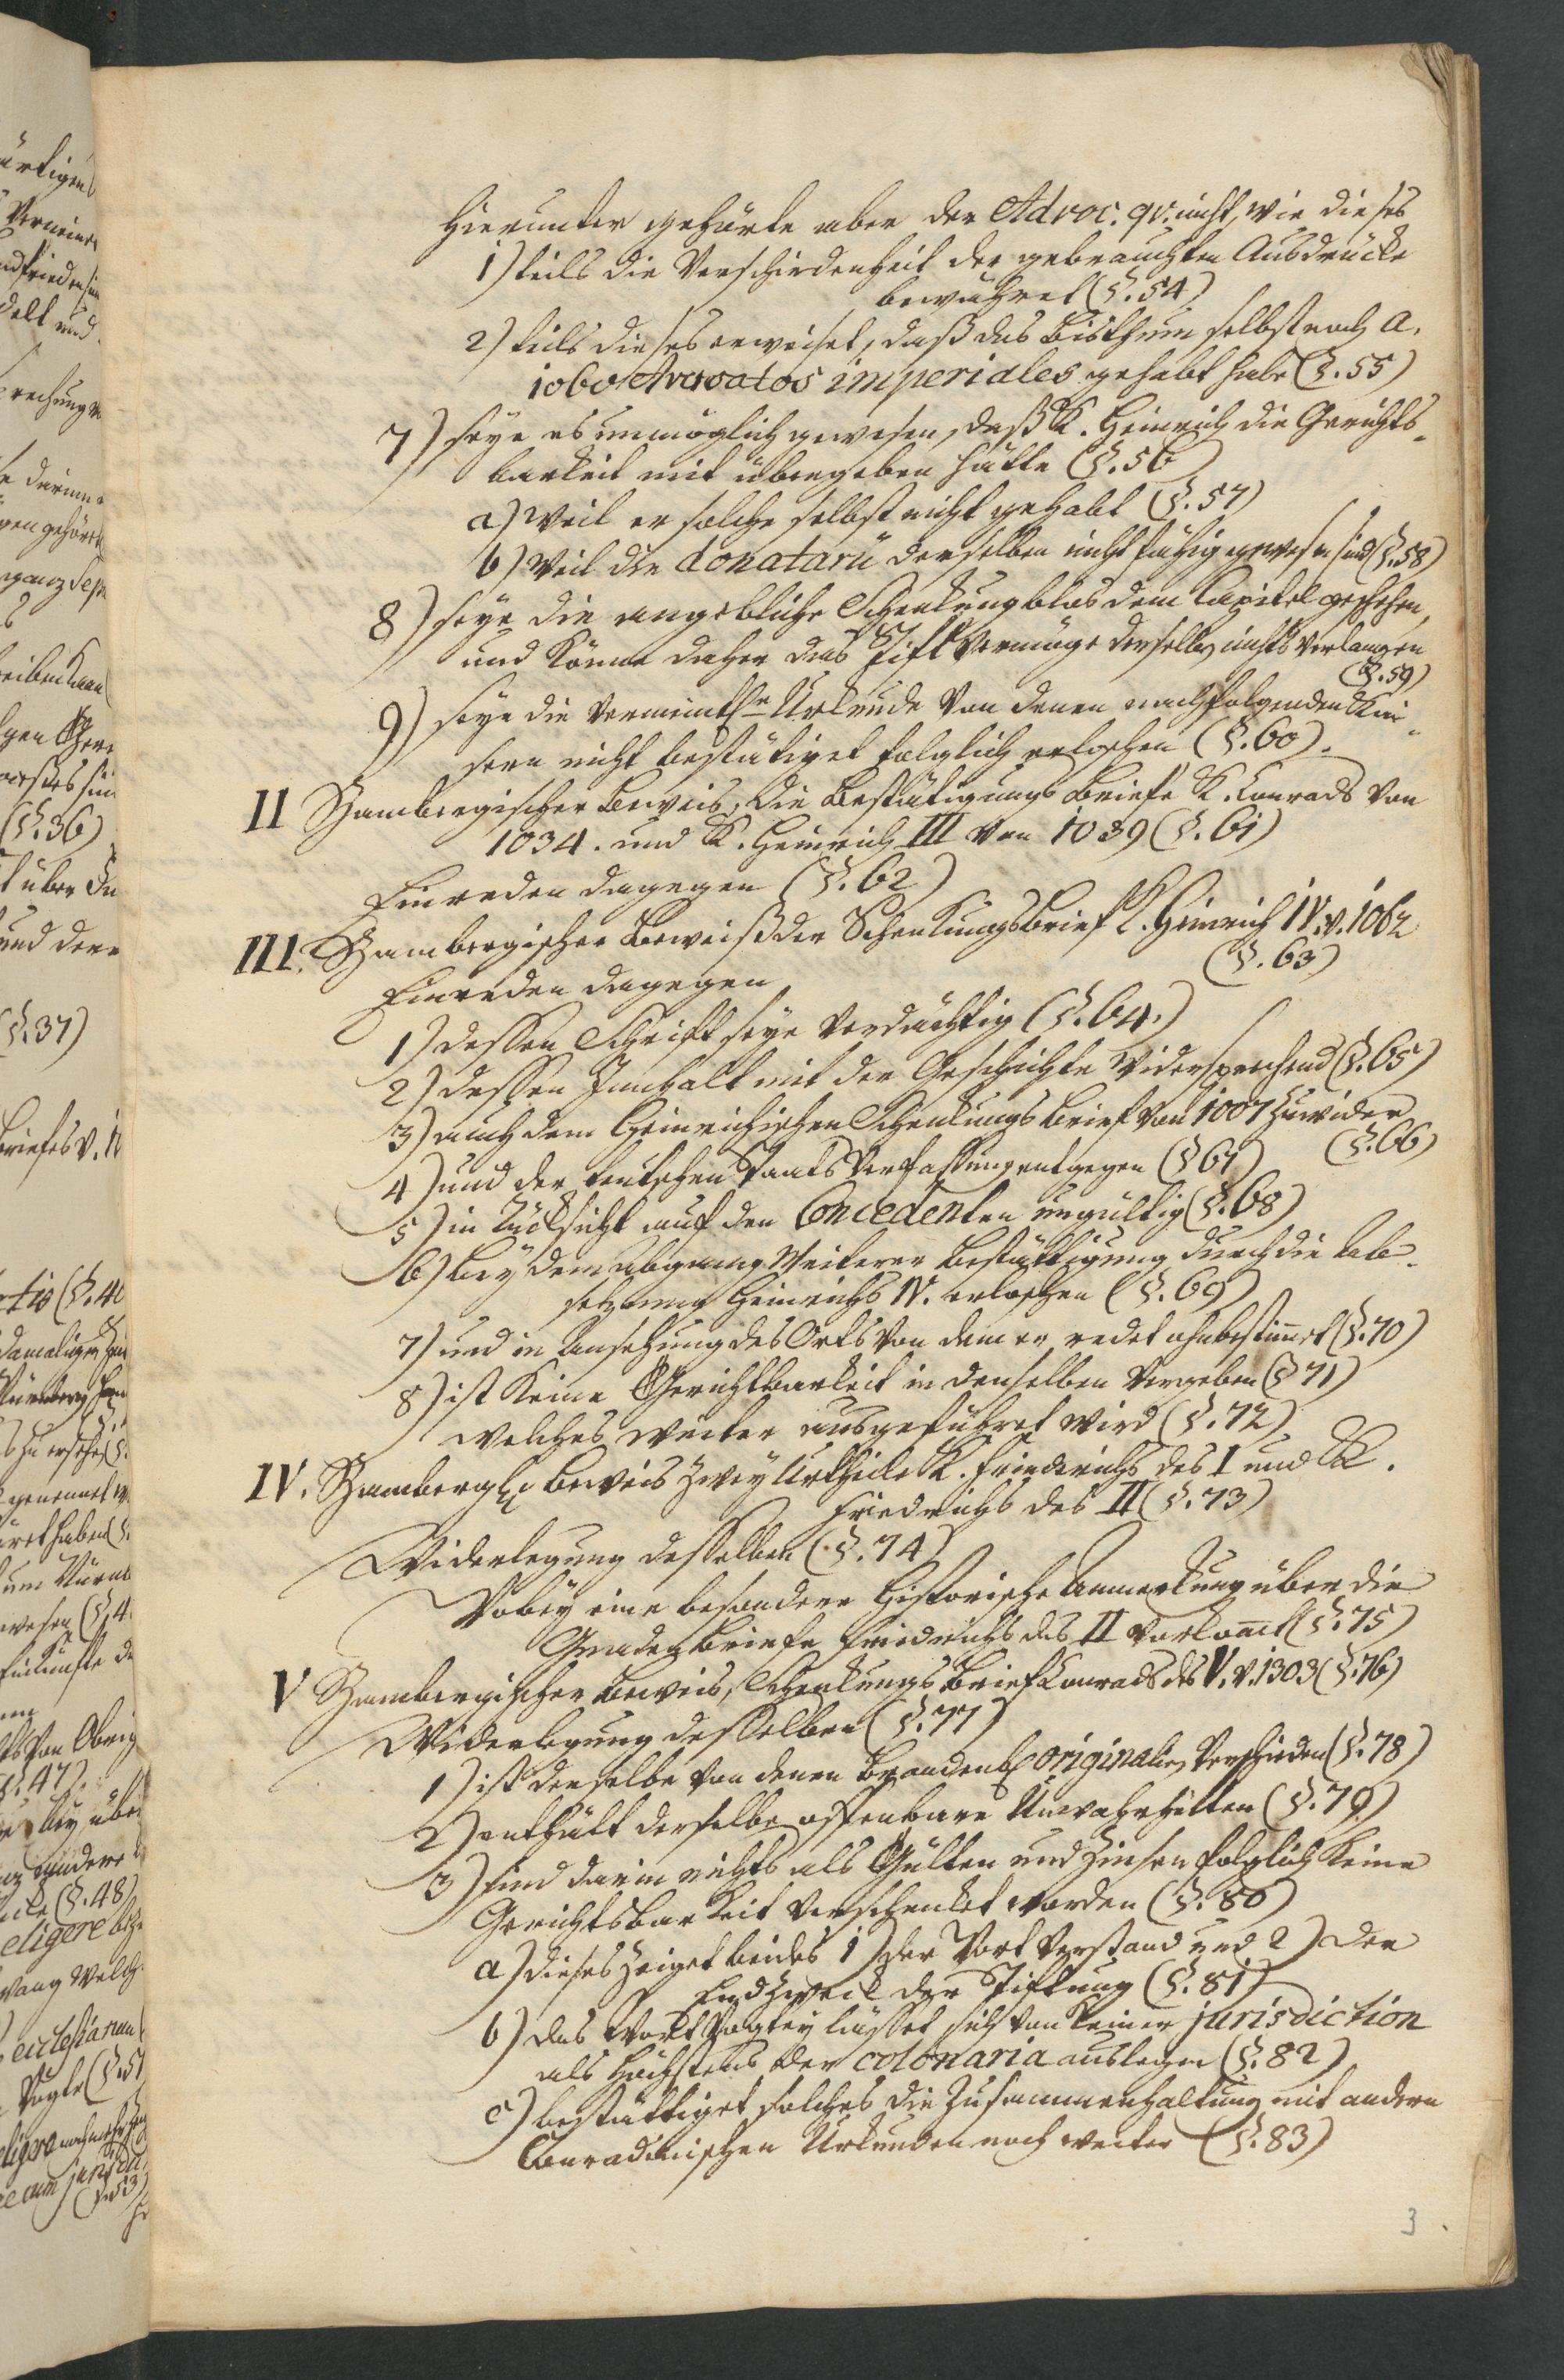 Hierunter gehörte aber der Advoc. qv. nicht, wie dieses
1) theils die Verschiedenheit der gebrauchten Ausdrücke
bewähret (§. 54)
2) theils dieses erweiset, daß das Bisthum selbst noch A.
1060 Advocatos imperiales gehabt habe (§. 55)
7) seye es unmöglich gewesen, daß K. Heinrich die Gerichts-
barkeit mit übergeben hätte (§. 56)
a) weil er solche selbst nicht gehabt (§. 57)
b) weil die donatarii derselben nicht fähig gewesen sind (§. 58)
8) seye die angebliche Schenkung blos dem Capitel geschehen,
und könne daher das Stift vermöge derselben nichts verlangen
(§. 59)
9) seye die vermeintl. Urkunde von denen nachfolgenden Kai-
sern nicht bestätiget folglich erloschen (§. 60).
II Bambergischer Beweis, die Bestätigungs Briefe K. Conrads von
1034. und K. Heinrich III von 1039 (§. 61)
Einreden dagegen (§. 62)
III. Bambergischer Beweiß der Schenkungsbrief K. Heinrich IV. v. 1062
(§. 63)
Einreden dagegen
1) dessen Schrift seye verdächtig (§. 64.)
2) dessen Innhalt mit der Geschichte widersprechend (§. 65)
3) auch dem Heinrichischen Schenkungs Brief von 1007 zuwider
(§. 66)
4) und der teutschen Staats Verfassung entgegen (§ 67)
5) in Rücksicht auf den Concedenten ungültig (§. 68)
6) bey dem Abgang weiterer Bestättigung durch die Ab-
setzung Heinrichs IV. erloschen (§. 69)
7) und in Ansehung des Orts von dem er redet ohnbestimmt (§. 70)
8) ist keine Gerichtbarkeit in denselben vergeben (§ 71)
welches weiter ausgeführet wird (§. 72)
IV. Bambergl. Beweis zwey Urtheile K. Friedrichs des I und K.
Friedrichs des II (§. 73)
Widerlegung desselben (§. 74)
Wobey eine besondere Historische Anmerkung über die
Gnaden Briefe Friedrichs des II vorkomt (§. 75)
V Bambergischer Beweis, Schenkungs Brief Conrads des V. v. 1303 (§. 76)
Widerlegung desselben (§. 77)
1) ist derselbe von denen Brandenb. originalien verschieden (§. 78)
2) enthält derselbe offenbare Unwahrheiten (§. 79)
3) sind darin nichts als Gülten und Zinsen folglich keine
Gerichtsbarkeit verschenket worden (§. 80)
a) dieses zeiget beides 1) der Wort Verstand und 2) der
Endzweck der Stiftung (§. 81)
b) das Wort Vogtey lässet sich von keiner jurisdiction
als höchstens der colonaria auslegen (§. 82)
c) bestättiget solches die Zusammenhaltung mit andern
Conradinischen Urkunden noch weiter (§. 83)
3